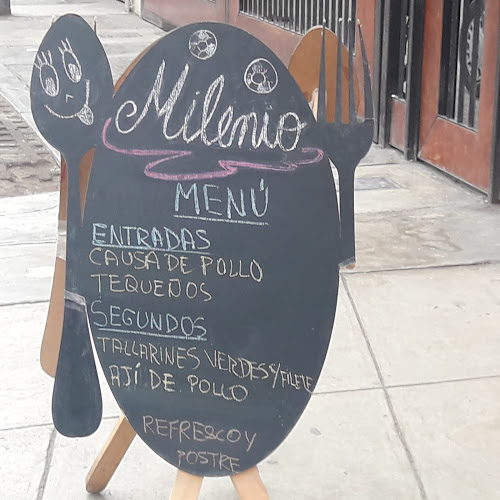 Milenio
MENÚ
ENTRADAS
CAUSA DE POLLO
TEQUEÑOS
SEGUNDOS
TALLARINES VERDES C/FILETE
AJÍ DE POLLO
REFRESCO Y
POSTRE